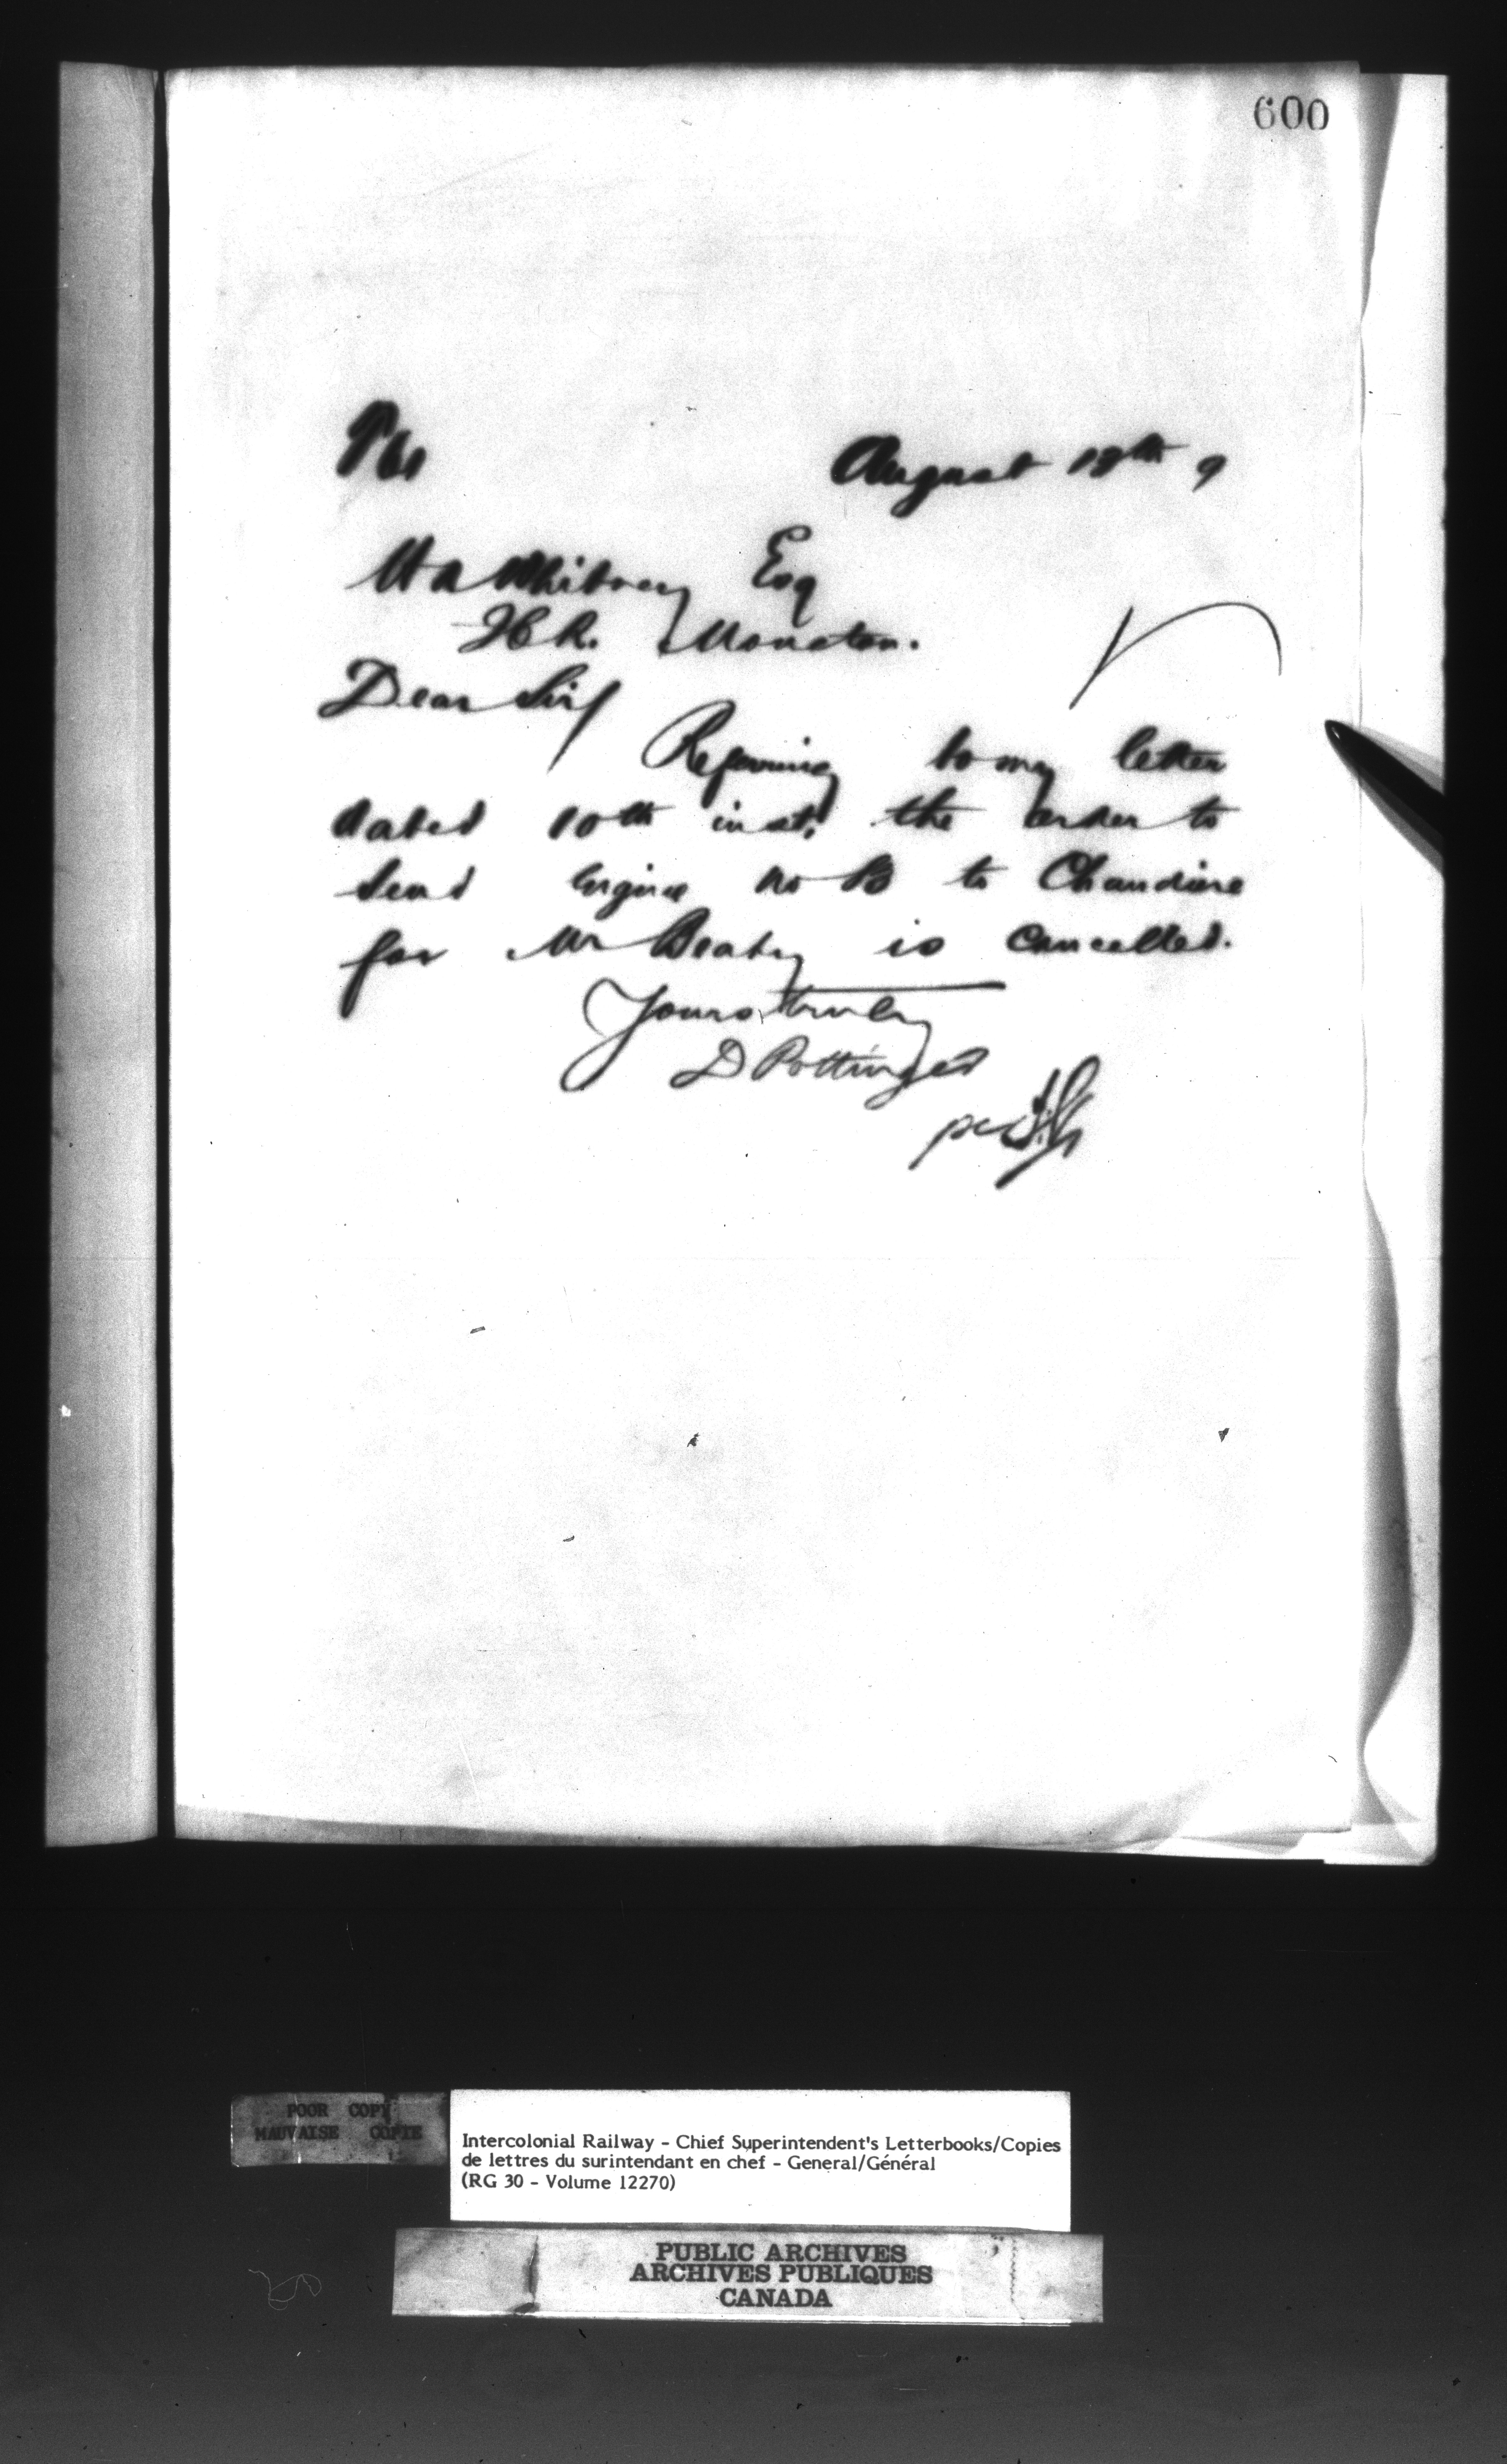 600
August 18th 9
H A Whitney Esq
I C R. Moncton.
Dear Sir/
Referring to my letter
dated 10th inst, the order to
send Engine No to Chaudiere
for Mr Beatty is cancelled.
Yours truly
D Pottinger
per
POOR COPY
MAUVAISE COPIE
Intercolonial Railway - Chief Superintendent's Letterbooks/Copies
de lettres du surintendant en chef - General/Général
(RG 30 - Volume 12270)
PUBLIC ARCHIVES
ARCHIVES PUBLIQUES
CANADA